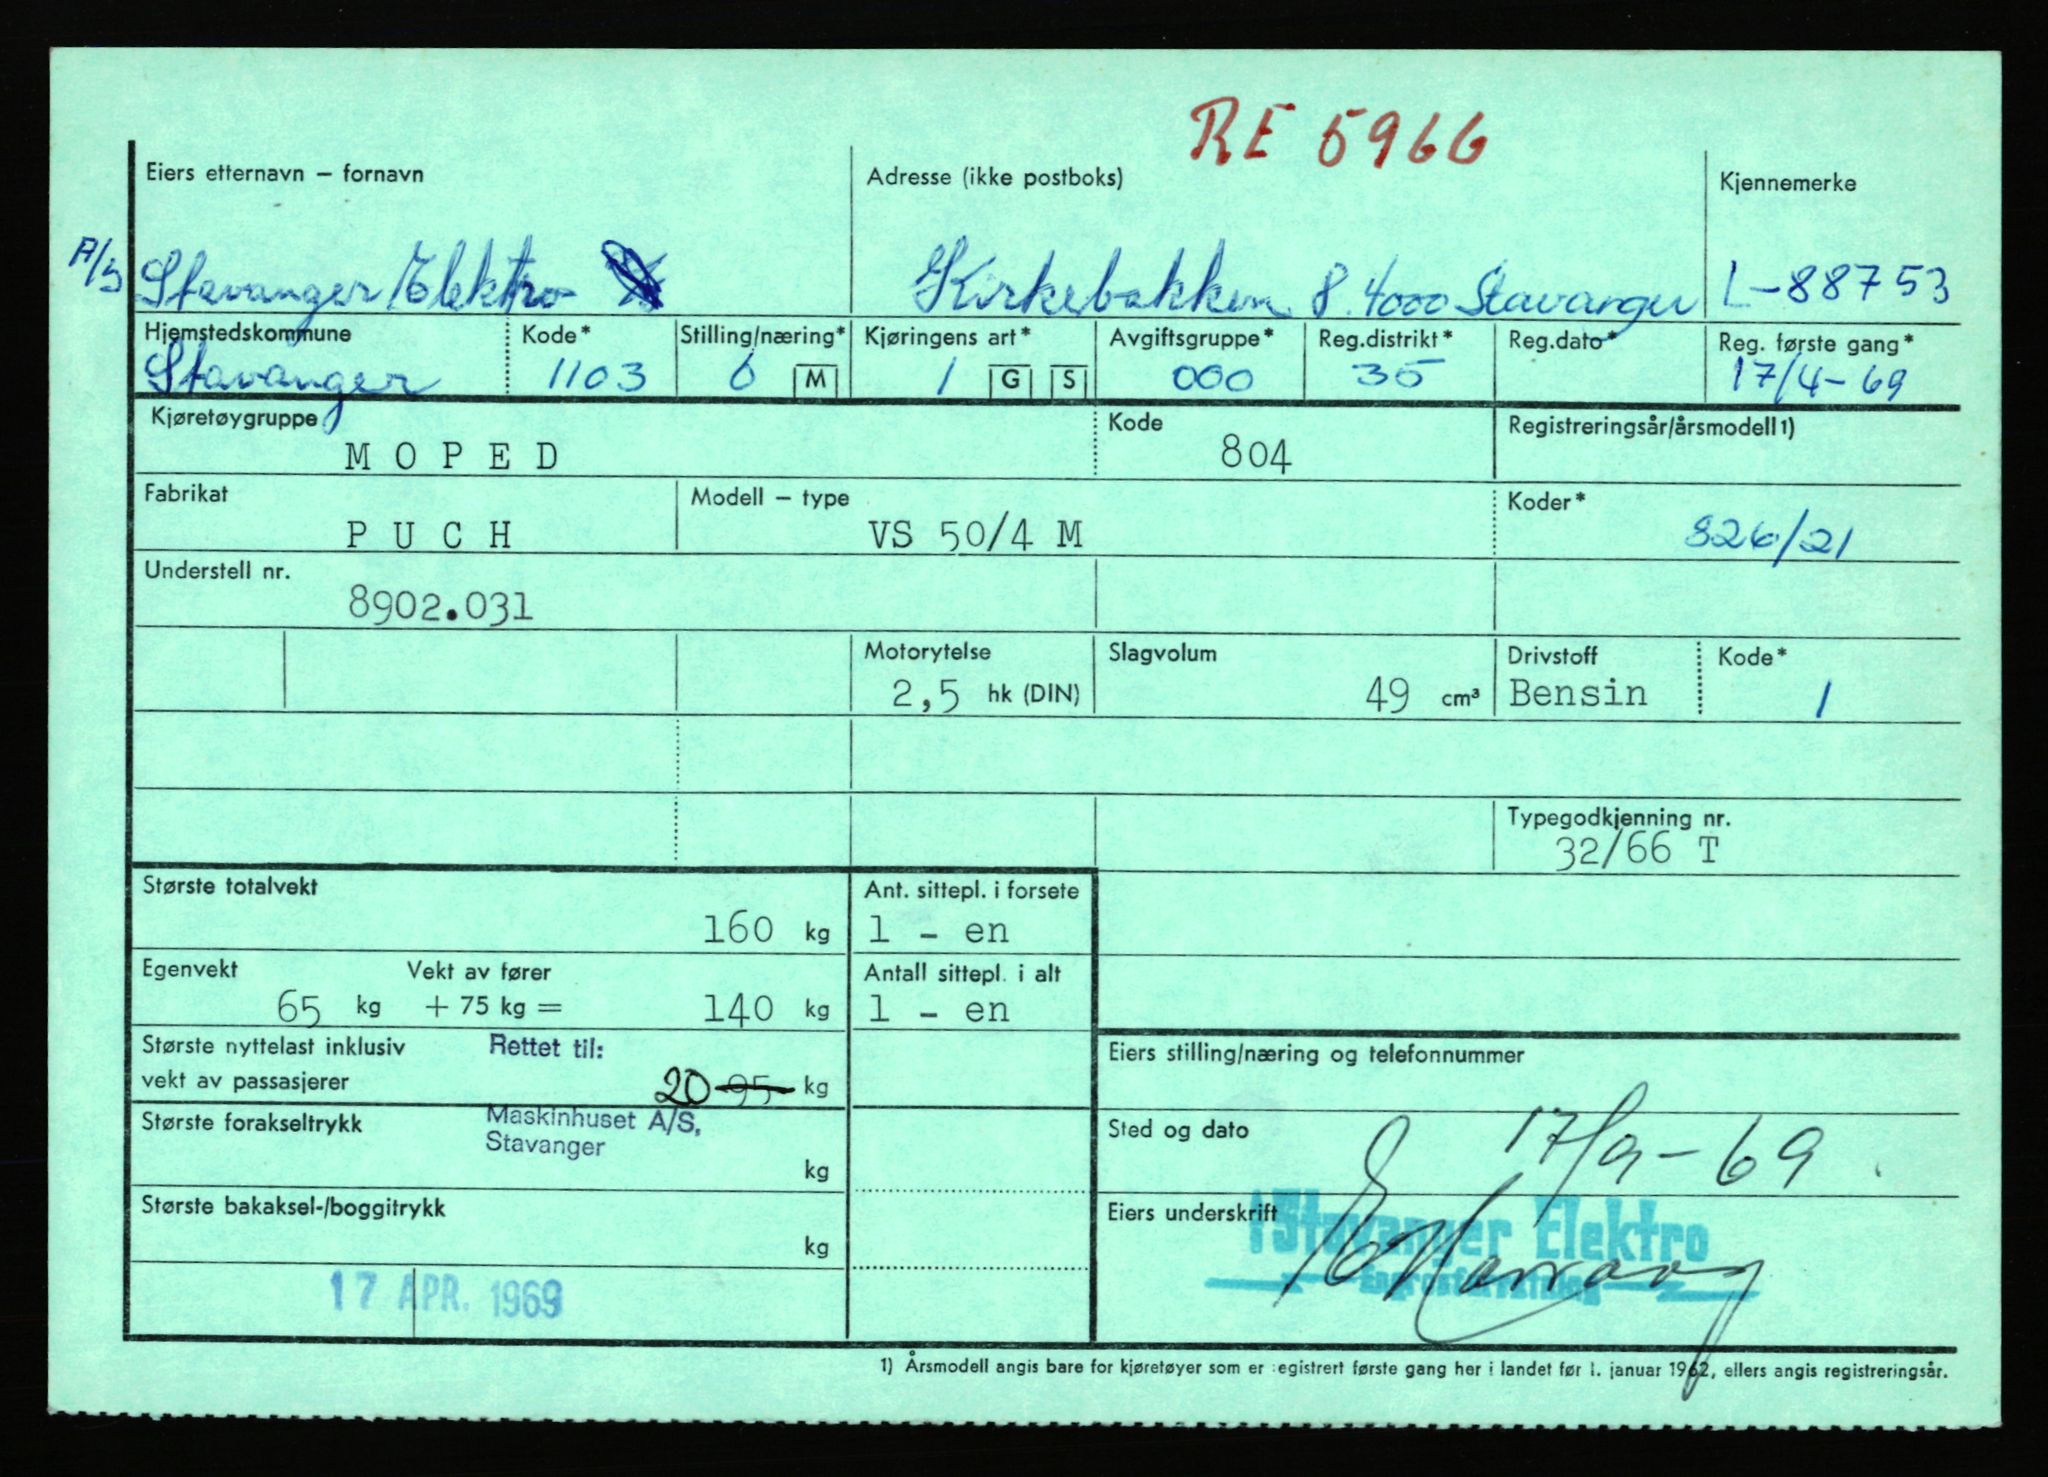 RE 5966
Eiers etternavn – fornavn
Adresse (ikke postboks)
Kjennemerke
A/S Stavanger Elektro
Kirkebakken 8. 4000 Stavanger
L-88753
Hjemstedskommune
Kode*
Stilling/næring*
Kjøringens art*
Avgiftsgruppe*
Reg.distrikt*
Reg.dato*
Reg. første gang*
Stavanger
1103
6 M
1 G S
000
35
17/4-69
Kjøretøygruppe
Kode
Registreringsår/årsmodell1)
MOPED
804
Fabrikat
Modell – type
Koder*
PUCH
VS 50/4 M
826/21
Understell nr.
8902.031
Motorytelse
Slagvolum
Drivstoff
Kode*
2,5 hk (DIN)
49 cm³
Bensin
1
Typegodkjenning nr.
32/66 T
Største totalvekt
Ant. sittepl. i forsete
160 kg
1 - en
Egenvekt
Vekt av fører
Antall sittepl. i alt
65 kg + 75 kg = 140 kg
1 - en
Største nyttelast inklusiv
Rettet til:
vekt av passasjerer
20 95 kg
Eiers stilling/næring og telefonnummer
Største forakseltrykk
Maskinhuset A/S,
Stavanger
kg
Sted og dato
17/9-69
Største bakaksel-/boggitrykk
kg
Eiers underskrift
Stavanger Elektro
17 APR. 1969
1) Årsmodell angis bare for kjøretøyer som er registrert første gang her i landet før 1. januar 1962, ellers angis registreringsår.